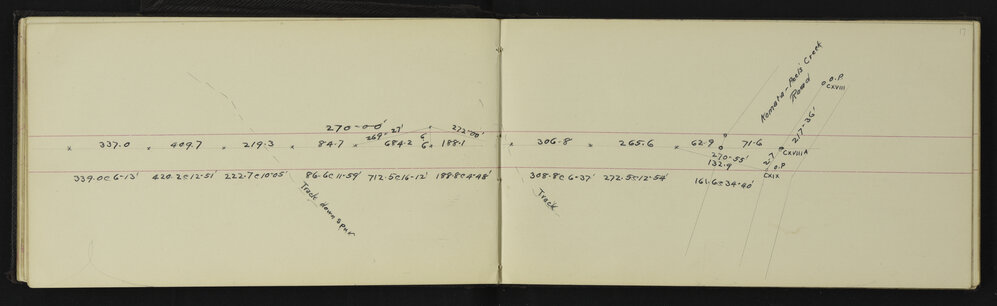 17
Komata-Peels' Creek
Road
O.P.
CXVIII
217-36'
270-00'
269-27'
272-00'
6
6
337.0 409.7 219.3 84.7 684.2 188.1 306.8 265.6 62.9 71.6
270-55'
132.9
27
CXVIIIA
O.P.
CXIX
339.0@6-13' 420.2@12-51' 222.7@10-05' 86.6@11-59' 712.5@16-12' 188.8@4-48' 308.8@6-37' 272.5@12-54' 161.6@34-40'
Track down spur
Track